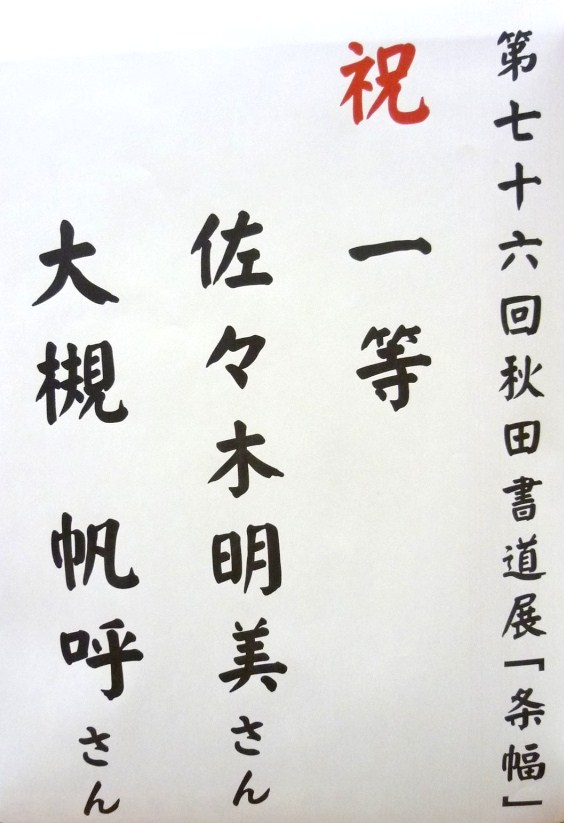 第七十六回秋田書道展「条幅」
祝 一等
佐々木明美さん
大槻 帆呼さん